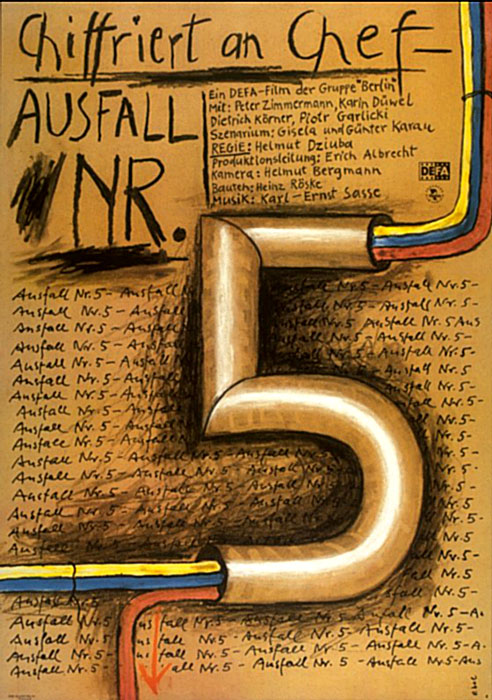 Chiffriert an Chef-
AUSFALL
NR.
5
Ein DEFA-Film der Gruppe "Berlin"
Mit: Peter Zimmermann, Karin Düwel
Dietrich Körner, Piotr Garlicki
Szenarium: Gisela und Günter Karau
REGIE: Helmut Dziuba
Produktionsleitung: Erich Albrecht
Kamera: Helmut Bergmann
Bauten: Heinz Röske
Musik: Karl-Ernst Sasse
DEFA
Ausfall Nr. 5 - Ausfall Nr. 5 - Ausfall Nr. 5-
Ausfall Nr. 5 - Ausfall Ausfall Nr. 5-
Ausfall Nr. 5 - Ausfall Ausfall Nr. 5 Aus
Ausfall Nr. 5 - Ausfall Ausfall Nr. 5-
Ausfall Nr. 5 - Ausfall Ausfall Nr. 5-
Ausfall Nr. 5 - Ausfall Ausfall Nr. 5
Ausfall Nr. 5 - Ausfall Nr. 5-
Ausfall Nr. 5 - Ausfall Nr. 5-
Ausfall Nr. 5 - Ausfall Nr. 5-
Ausfall Nr. 5 - Ausfall Nr. 5-
Ausfall Nr. 5 - Ausfall Nr. 5 - Ausfall Nr. 5-
Ausfall Nr. 5 - Ausfall Nr. 5 - Ausfall Nr. 5-
Ausfall Nr. 5 - Ausfall Nr. 5 - Ausfall Nr. 5-
Ausfall Nr. 5 - Ausfall Nr. 5 - Nr. 5-
Ausfall Nr. 5-
fall Nr. 5
Ausfall Nr. 5 Nr. 5-
Ausfall Nr. 5 Ausfall Nr. 5 - Ausfall Nr. 5 - A.
Ausfall Nr. 5 fall Nr. 5 - Ausfall Nr. 5 - Ausfall Nr. 5-
Ausfall Nr. 5 fall Nr. 5 - Ausfall Nr. 5 - Ausfall Nr. 5 - A.
Ausfall Nr. 5 - all Nr. 5 - Ausfall Nr. 5 - Ausfall Nr. 5 - Aus